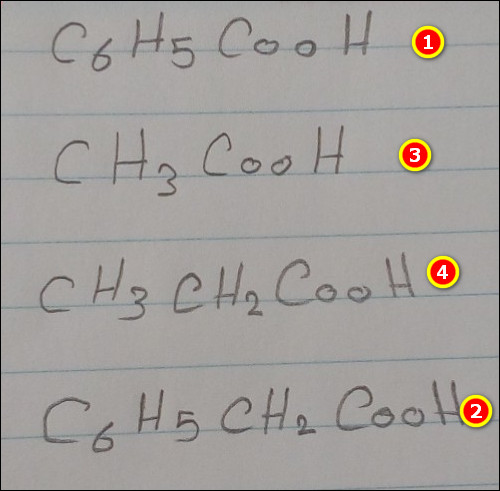 C6H5COOH 1
CH3COOH 3
CH3CH2COOH 4
C6H5CH2COOH 2